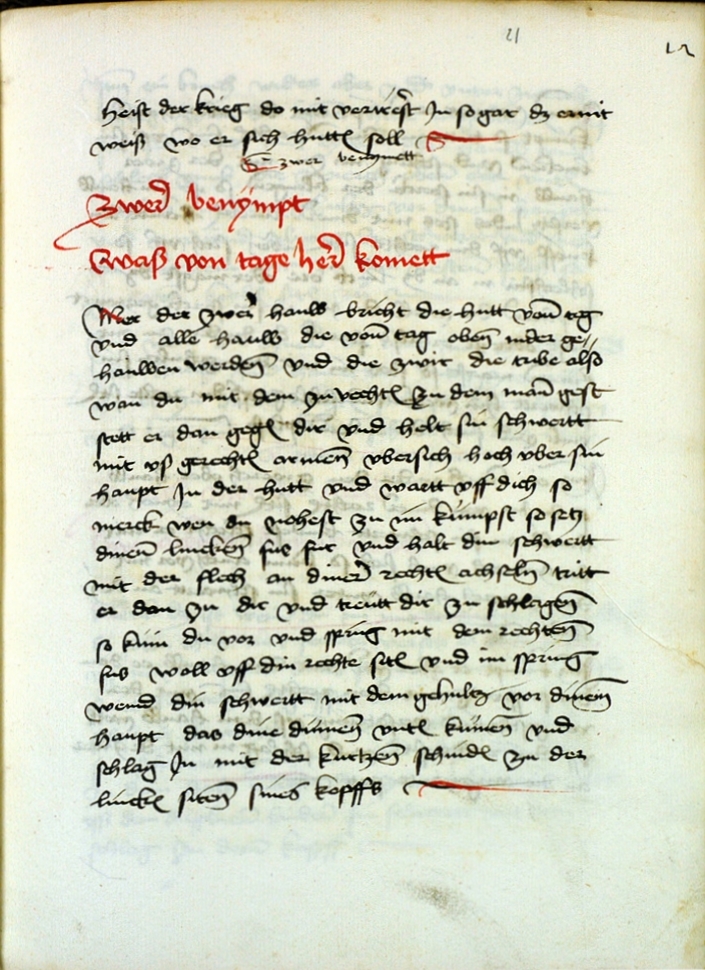 21
heist der krieg do mit verirest Jn so gar dz er nit
weiß wo er sich huttē soll
Zwer benymett
Zwerē benÿmpt
Waß von tage herē komett
Mer der zwer hauw bricht die hutt vom tag
vnd alle hauw die vom tag oben nider ge//
hauwen werdenn vnd die zwir die tribe also
wan du mit dem zuvechtē zu dem man gest
stett er dan gegē dir vnd helt sin schwertt
mit vs gerechtē armenn vbersich hoch vber sin
haupt Jn der hutt vnd wartt vff dich so
merck wen du nohest zu im kumpst so setz
dinenn linckenn fus fur vnd halt din schwertt
mit der flech an diner rechtē achselnn tritt
er dan zu dir vnd treutt dir zu schlagenn
so kum du vor vnd spring mit dem rechtenn
fus woll vff din rechte sitē vnd im spring
wend din schwertt mit dem gehultz vor dinem
haupt das dine dumenn vntē kumenn vnd
schlag Jn mit der kurtzenn schnidē zu der
linckē sitenn sines kopffs